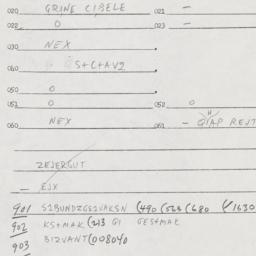 020 GRINE CIBELE 021 -
022 0 023 -
030 NEX
060 S+C+AV2
050 0
051 0 052 0
060 NEX 061 -
ZEJERGUT
- EJX
901 S2BUNDZGS2VAKSN (490 (568 (680
902 KS+MAK (213 GI GES+MAK
903 BIZVANT (008040